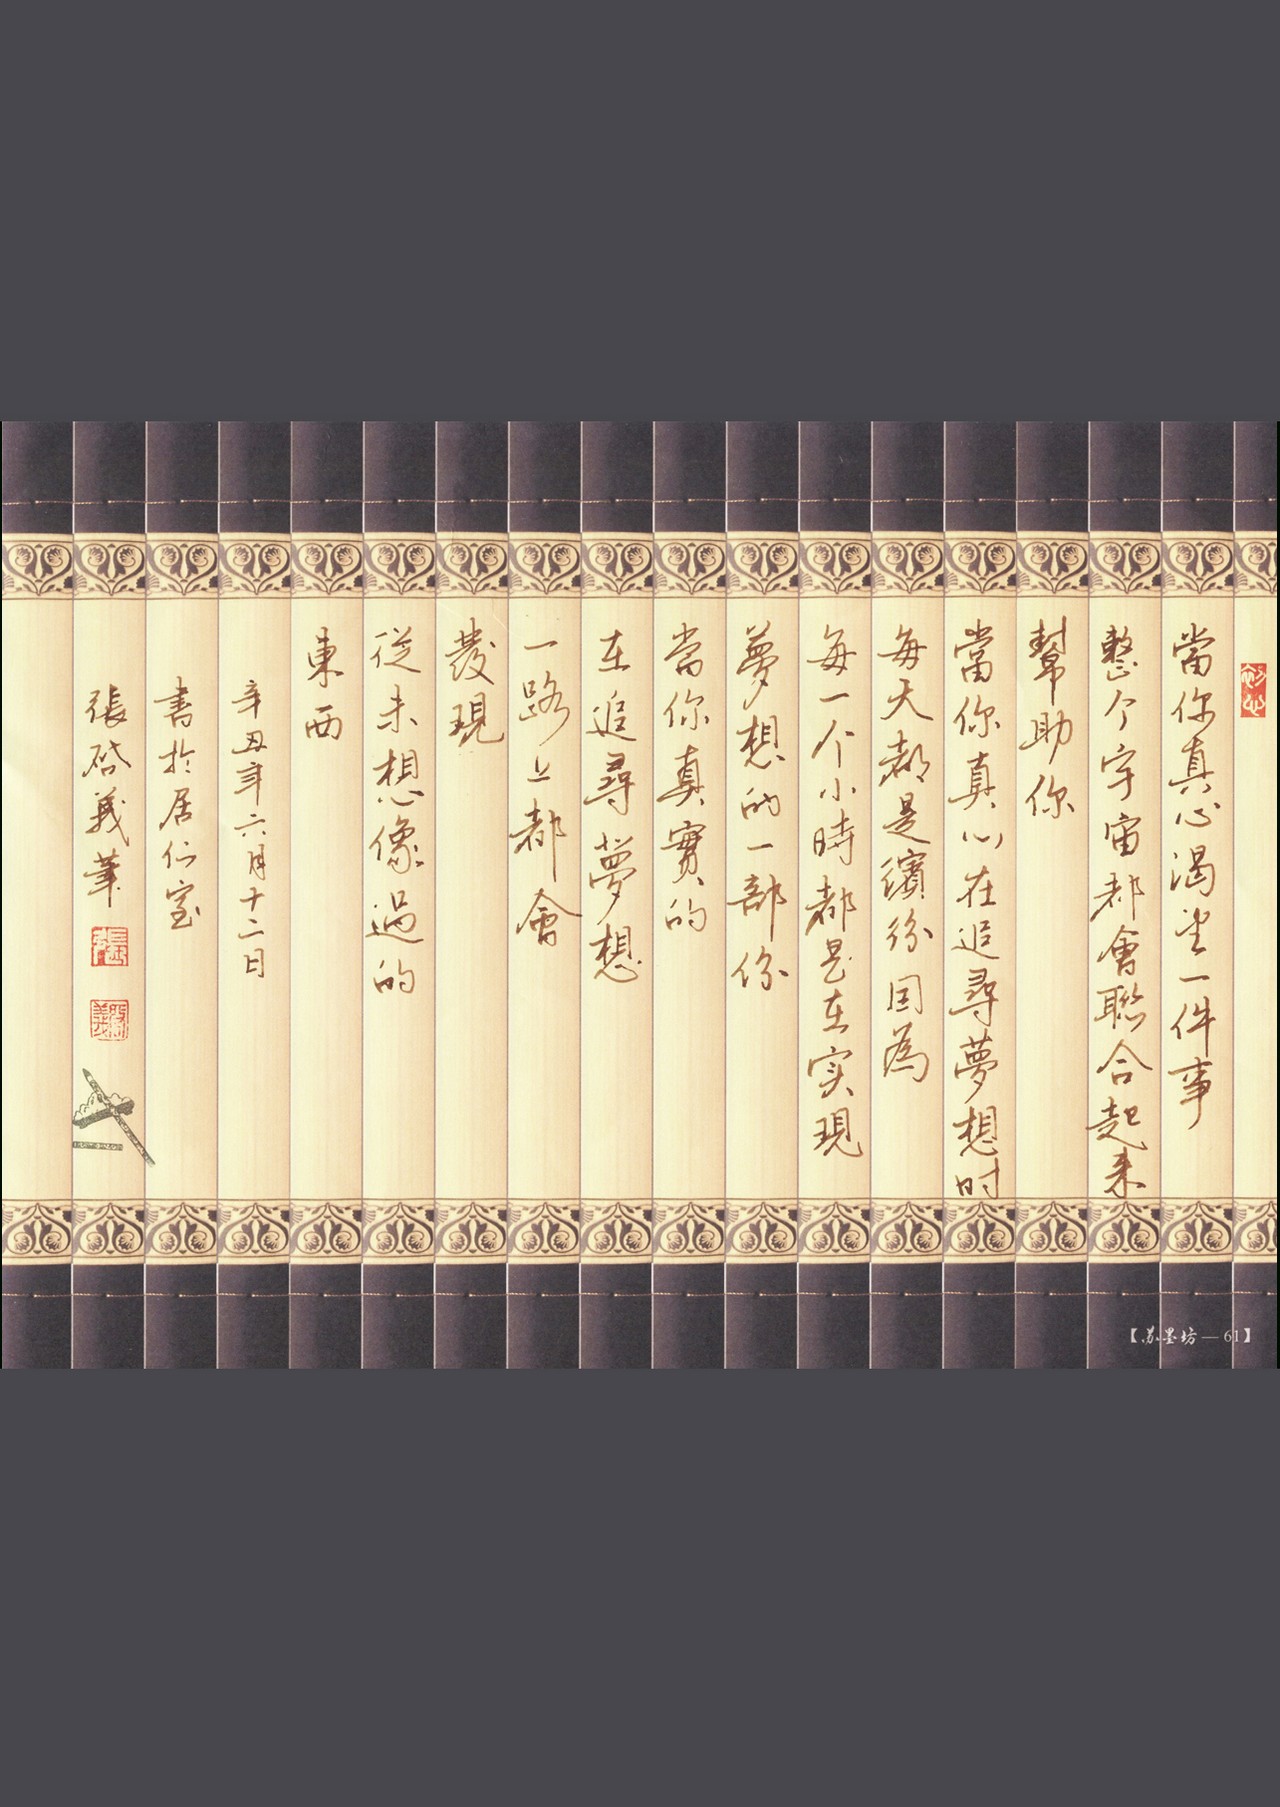 初心
當你真心渴望一件事
整个宇宙都會聯合起来
幫助你
當你真心在追尋夢想时
每天都是繽纷因為
每一个小時都是在实現
夢想的一部份
當你真實的
在追尋夢想
一路上都會
發現
從未想像過的
東西
辛丑年六月十二日
書於居仁室
張啓義筆
張
【苏墨坊—61】